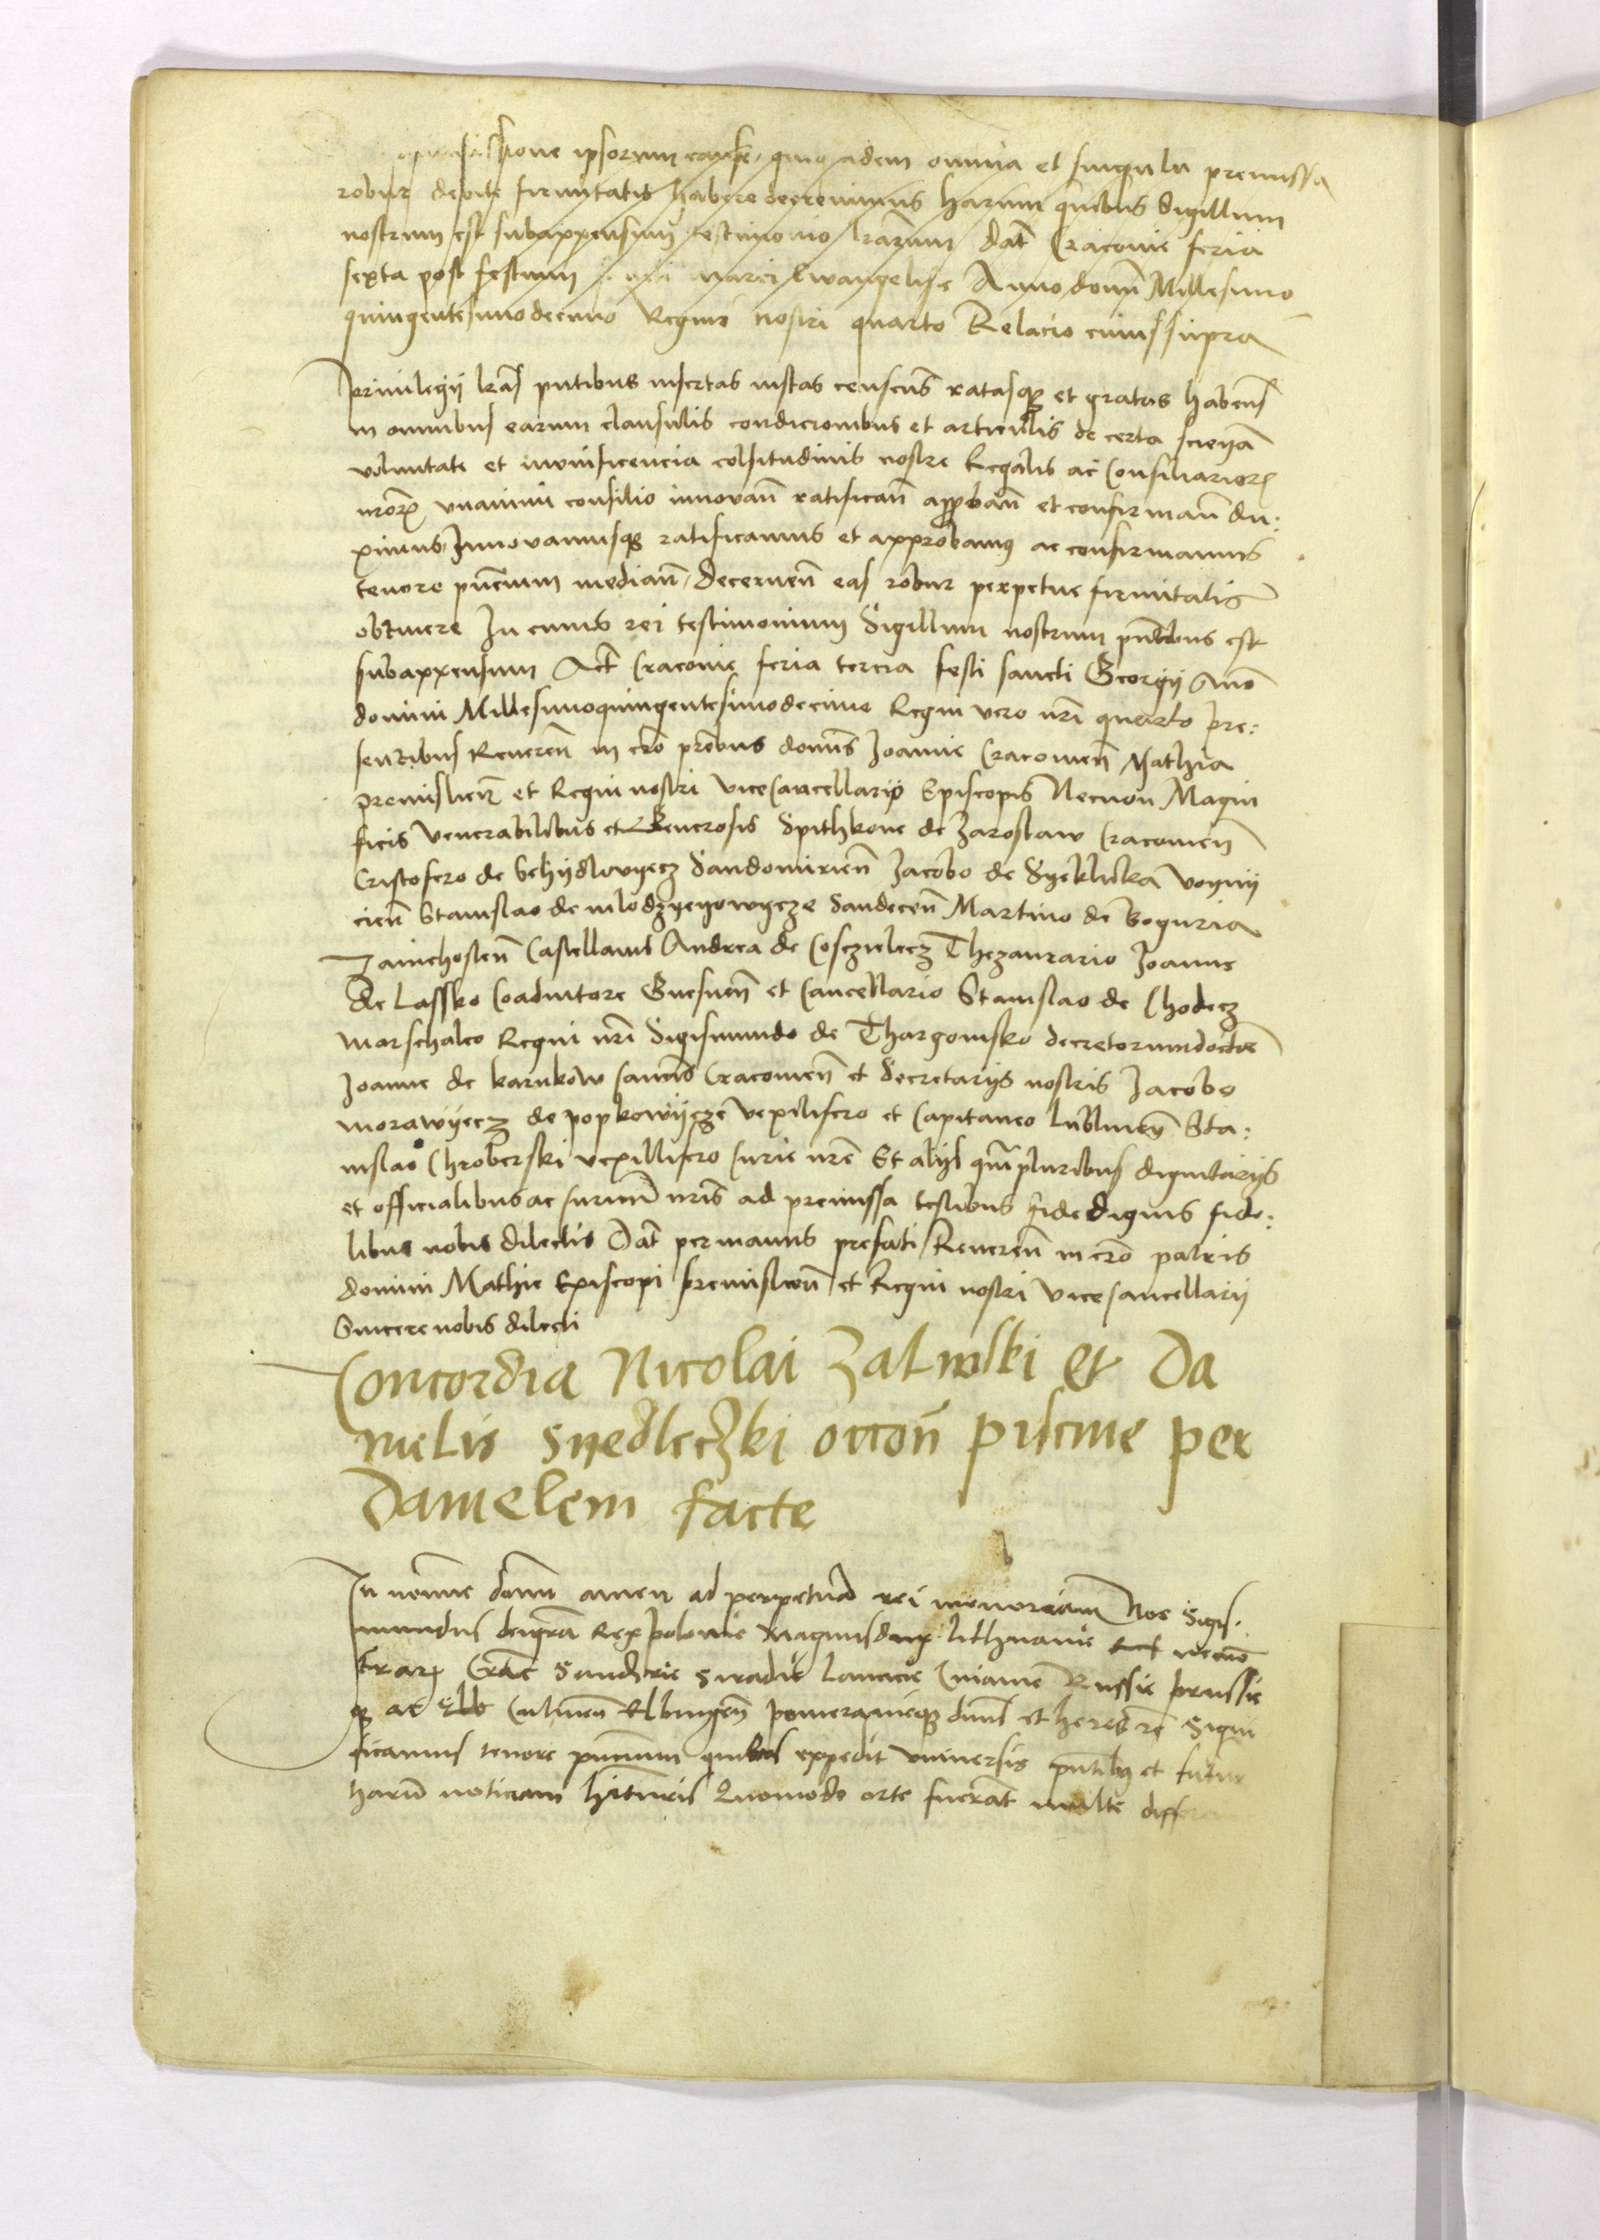 ipsorum causse, quo adem omnia et singula premissa
robur debite firmitatis habere decrevimus harum quibus Sigillum
nostrum est subappensum testimonio lrarum Dat Cracovie feria
sexta post festum Marci Ewangeliste Anno domini Millesimo
quingentesimodecimo Regni nostri quarto Relacio cuius supra
privilegij lras pntibus insertas iustas censens ratasque et gratas habens
in omnibus earum clausulis condicionibus et articulis de certa sciencia
voluntate et munificencia celsitudinis nostre Regalis ac Consiliarior
nror unanimi consilio innovan ratifican approban et confirman du:
ximus, Innovamusque ratificamus et approbamus ac confirmamus
tenore pncium median, Decernen eas robur perpetue firmitatis
obtinere In cuius rei testimonium Sigillum nostrum pntibus est
subappensum Act Cracovie feria tercia festi sancti Georgij Anno
domini Millesimoquingentesimodecimo Regni vero nri quarto pre:
sentibus Reveren in cro prbus domis Joanne Cracovien Mathia
premislien et Regni nostri vicecancellario Episcopis Necnon Magni
ficis venerabilibus et Generosis Spithkone de Jaroslaw Cracovien
Cristofero de Schydlovyecz Sandomirien Jacobo de Syekluka voyny
cien Stanislao de mlodzyeyowycze Sandecen Martino de Boguria
Zawichosten Castellanis Andrea de Cosczielecz Thezaurario Joanne
de Lassko Coadiutore Gnesnen et Cancellario Stanislao de Chodecz
marschalco Regni nri Sigismundo de Thargovisko decretorum doctore
Joanne de karnkow canonico Cracovien et Secretarijs nostris Jacobo
morawyecz de popkowycze vexilifero et Capitaneo Lublinen Sta:
nislao Chroberski vexillifero curie nre Et alijs qmpluribus dignitarijs
et officialibus ac curien nris ad premissa testibus fide dignis fide:
libus nobis dilectis Dat per manus prefati Reveren in cro patris
domini Mathie Episcopi premislien et Regni nostri vicecancellarij
Sincere nobis dilecti
Concordia Nicolai Zalinski et Da
nielis Syedleczki occon piscine per
Danielem facte
In nomine domni amen ad perpetuam rei memoriam Nos Sigis.
mundus dei gra Rex polonie magnus dux lithuanie necnon
terrar Crac Sandzrie Siradie Lancicie Cuiavie Russie prussie
que ac Culmen Elbingen pomeranieque duns et heres rc Signi
ficamus tenore pncium quibus expedit universis pntibus et futur
harum noticiam hituris Quomodo orte fuerant multe differ